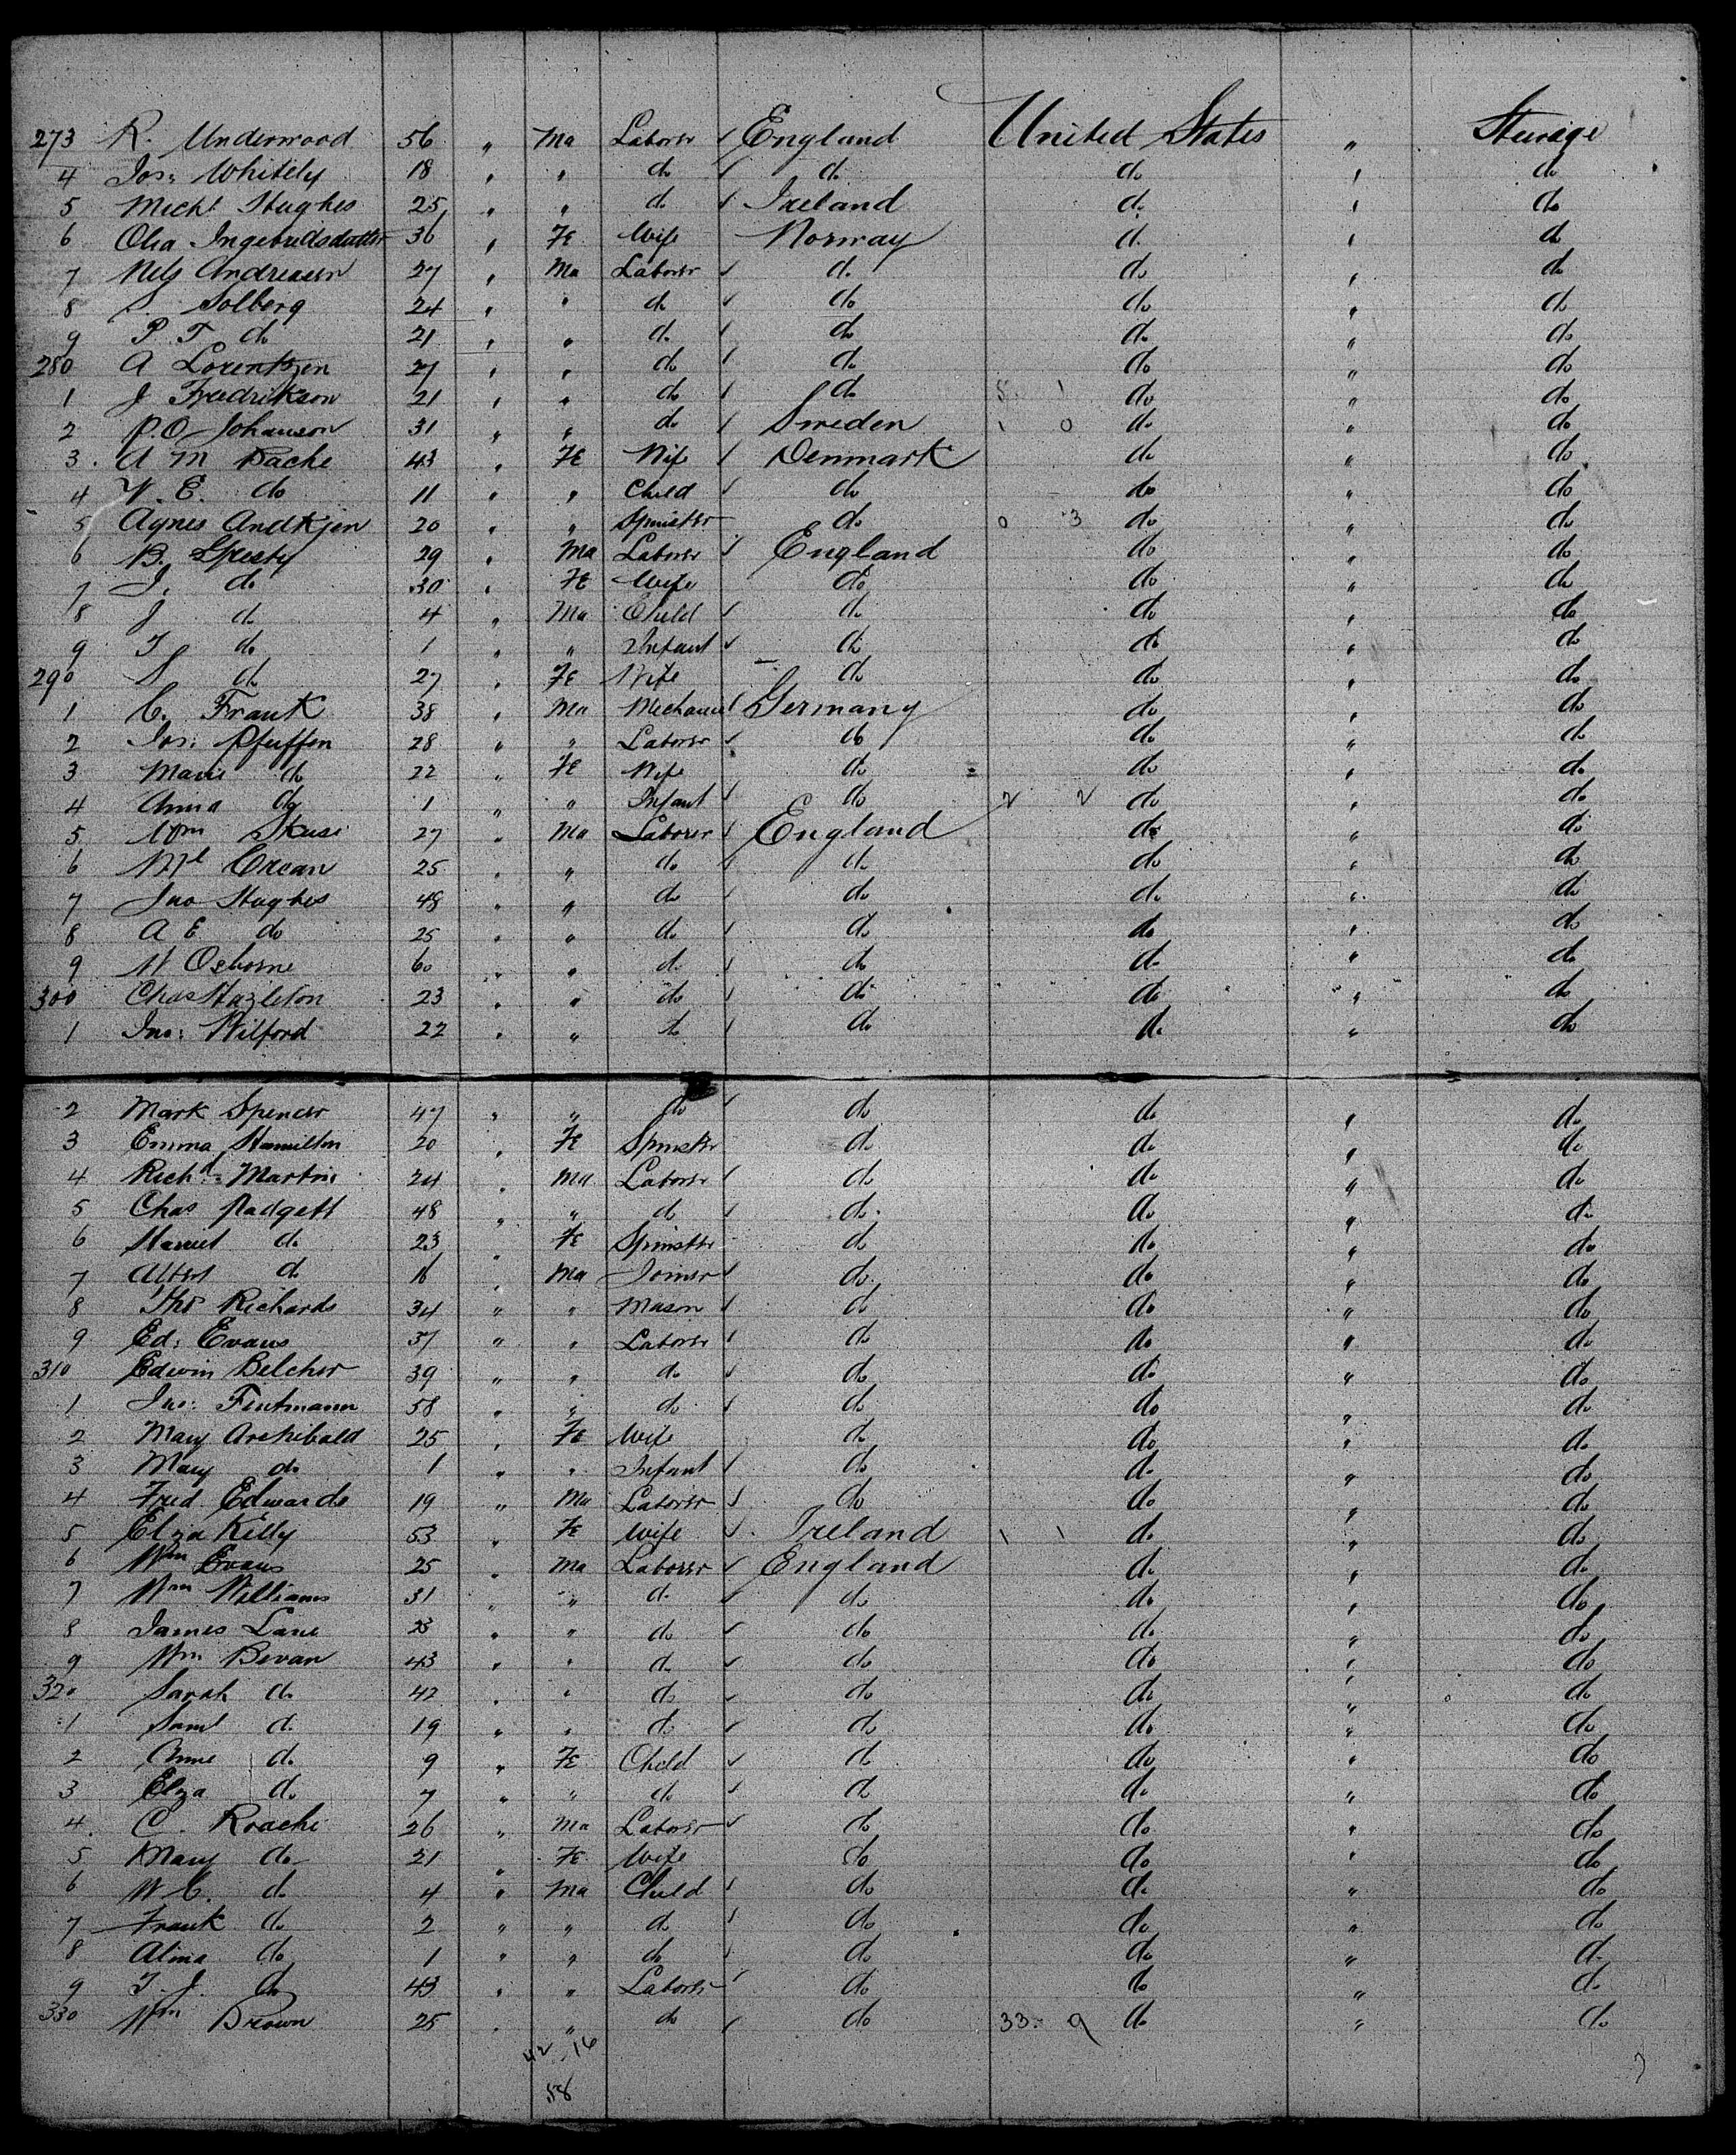 273 R. Underwood 56 " Ma Laborer England United States " Steerage
4 Jos: Whitely 18 " " do do do " do
5 Michl Hughes 25 " " do Ireland do " do
6 Olia Ingebretsdatter 36 " Fe Wife Norway do " do
7 Nels Andreasen 27 " Ma Laborer do do " do
8 S. Solberg 24 " " do do do " do
9 P. T do 21 " " do do do " do
280 A Lorentzen 27 " " do do do " do
1 J Fredrikson 21 " " do do 5 1 do " do
2 P.O Johanson 31 " " do Sweden 1 0 do " do
3 A M Bache 43 " Fe Wife Denmark do " do
4 V. E. do 11 " " Child do do " do
5 Agnes Andkjen 20 " " Spinster do 0 3 do " do
6 B. 29 " Ma Laborer England do " do
7 J. do 30 " Fe Wife do do " do
8 J do 4 " Ma Child do do " do
9 T do 1 " " Infant do do " do
290 S do 27 " Fe Wife do do " do
1 C. Frank 38 " Ma Mechanic Germany do " do
2 Jos: Pfeiffen 28 " " Laborer do do " do
3 Marie do 22 " Fe Wife do do " do
4 Anna do 1 " " Infant do 2 2 do " do
5 Wm Skuse 27 " Ma Laborer England do " do
6 Ml Crean 25 " " do do do " do
7 Jno Hughes 48 " " do do do " do
8 A E do 25 " " do do do " do
9 H Osborne 60 " " do do do " do
300 Chas Hazleton 23 " " do do do " do
1 Jno: Wilford 22 " " do do do " do
2 Mark Spencer 47 " " do do do " do
3 Emma Hamilton 20 " Fe Spinster do do " do
4 Richd Martin 24 " Ma Laborer do do " do
5 Chas Padgett 48 " " do do do " do
6 Harriet do 23 " Fe Spinster do do " do
7 Albert do 16 " Ma Joiner do do " do
8 Thos Richards 34 " " Mason do do " do
9 Ed: Evans 37 " " Laborer do do " do
310 Edwin Belcher 39 " " do do do " do
1 Jno: Fentmann 58 " " do do do " do
2 Mary Archibald 25 " Fe Wife do do " do
3 Mary do 1 " " Infant do do " do
4 Fred. Edwards 19 " Ma Laborer do do " do
5 Eliza Kelly 53 " Fe Wife Ireland 1 1 do " do
6 Wm Evans 25 " Ma Laborer England do " do
7 Wm Williams 31 " " do do do " do
8 James Lane 23 " " do do do " do
9 Wm Bevan 43 " " do do do " do
320 Sarah do 42 " " do do do " do
1 Saml do 19 " " do do do " do
2 Anne do 9 " Fe Child do do " do
3 Eliza do 7 " " do do do " do
4 C. Roache 26 " Ma Laborer do do " do
5 Mary do 21 " Fe Wife do do " do
6 W C. do 4 " Ma Child do do " do
7 Frank do 2 " " do do do " do
8 Alma do 1 " " do do do " do
9 T. J. do 43 " " Laborer do do " do
330 Wm Brown 25 " " do do 33 9 do " do
42 16
58